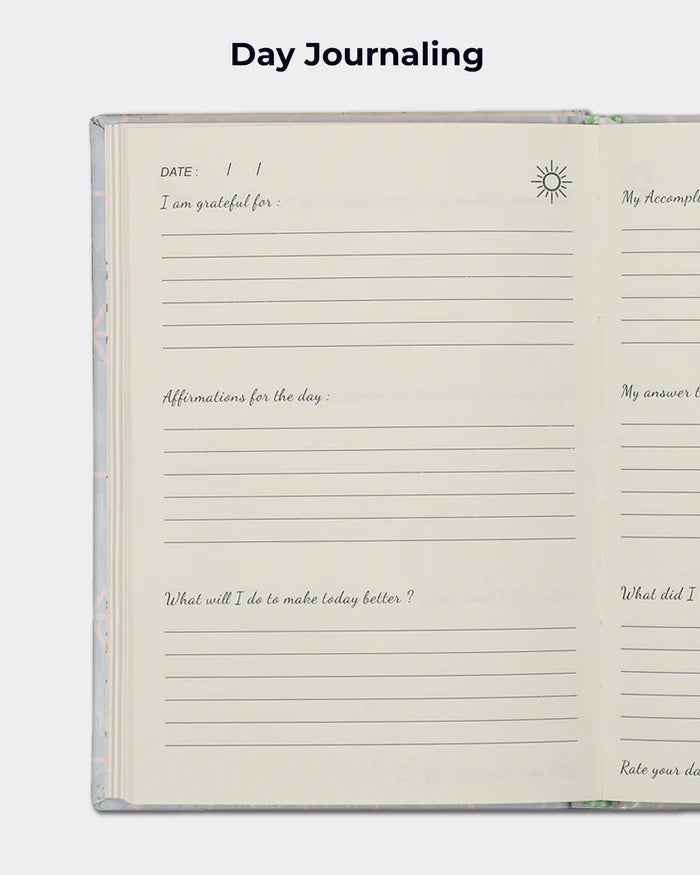 Day Journaling
DATE : / /
I am grateful for :
Affirmations for the day :
What will I do to make today better ?
My Accompl
My answer t
What did I
Rate your da